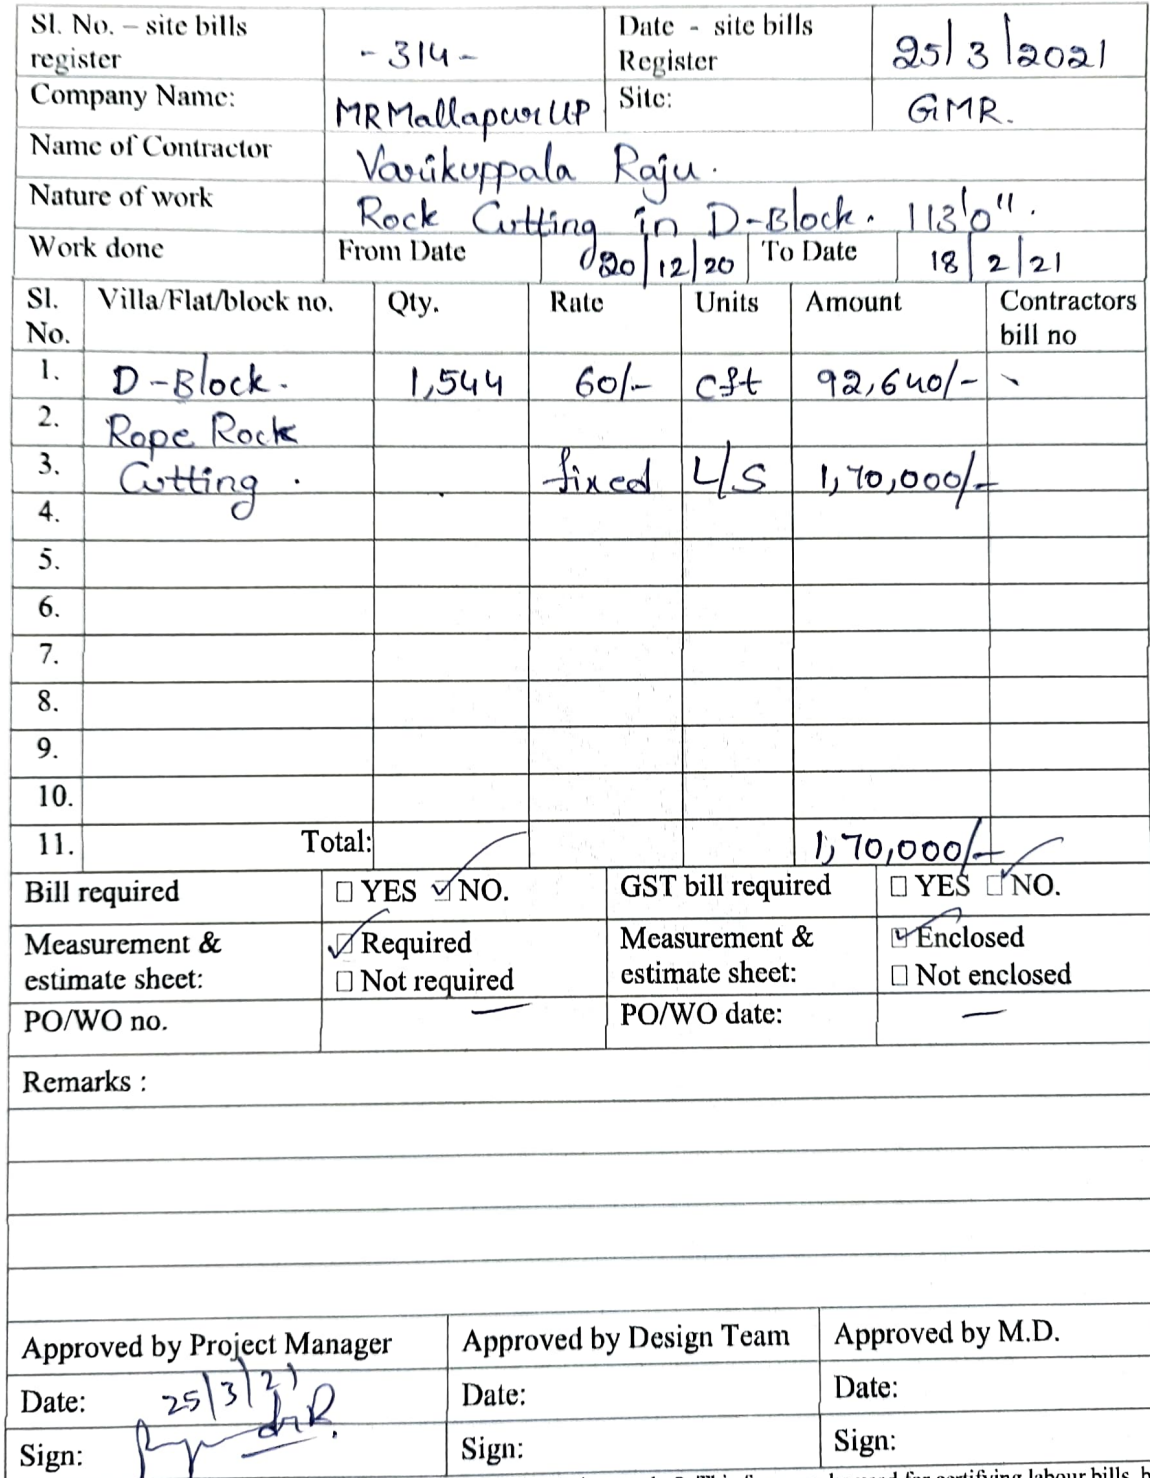 Sl. No. – site bills register -314- Date - site bills Register 25/3/2021
Company Name: MRMallapur UP Site: GMR.
Name of Contractor Varikuppala Raju.
Nature of work Rock Cutting in D-Block. 113'0".
Work done From Date 20/12/20 To Date 18/2/21
Sl. No. Villa/Flat/block no. Qty. Rate Units Amount Contractors bill no
1. D-Block. 1,544 60/- cft 92,640/-
2. Rope Rock
3. Cutting. fixed L/S 1,70,000/-
4.
5.
6.
7.
8.
9.
10.
11. Total: 1,70,000/-
Bill required YES NO. GST bill required YES NO.
Measurement & estimate sheet: Required Not required Measurement & estimate sheet: Enclosed Not enclosed
PO/WO no. — PO/WO date: —
Remarks :
Approved by Project Manager Approved by Design Team Approved by M.D.
Date: 25/3/21 Date: Date:
Sign: Sign: Sign: